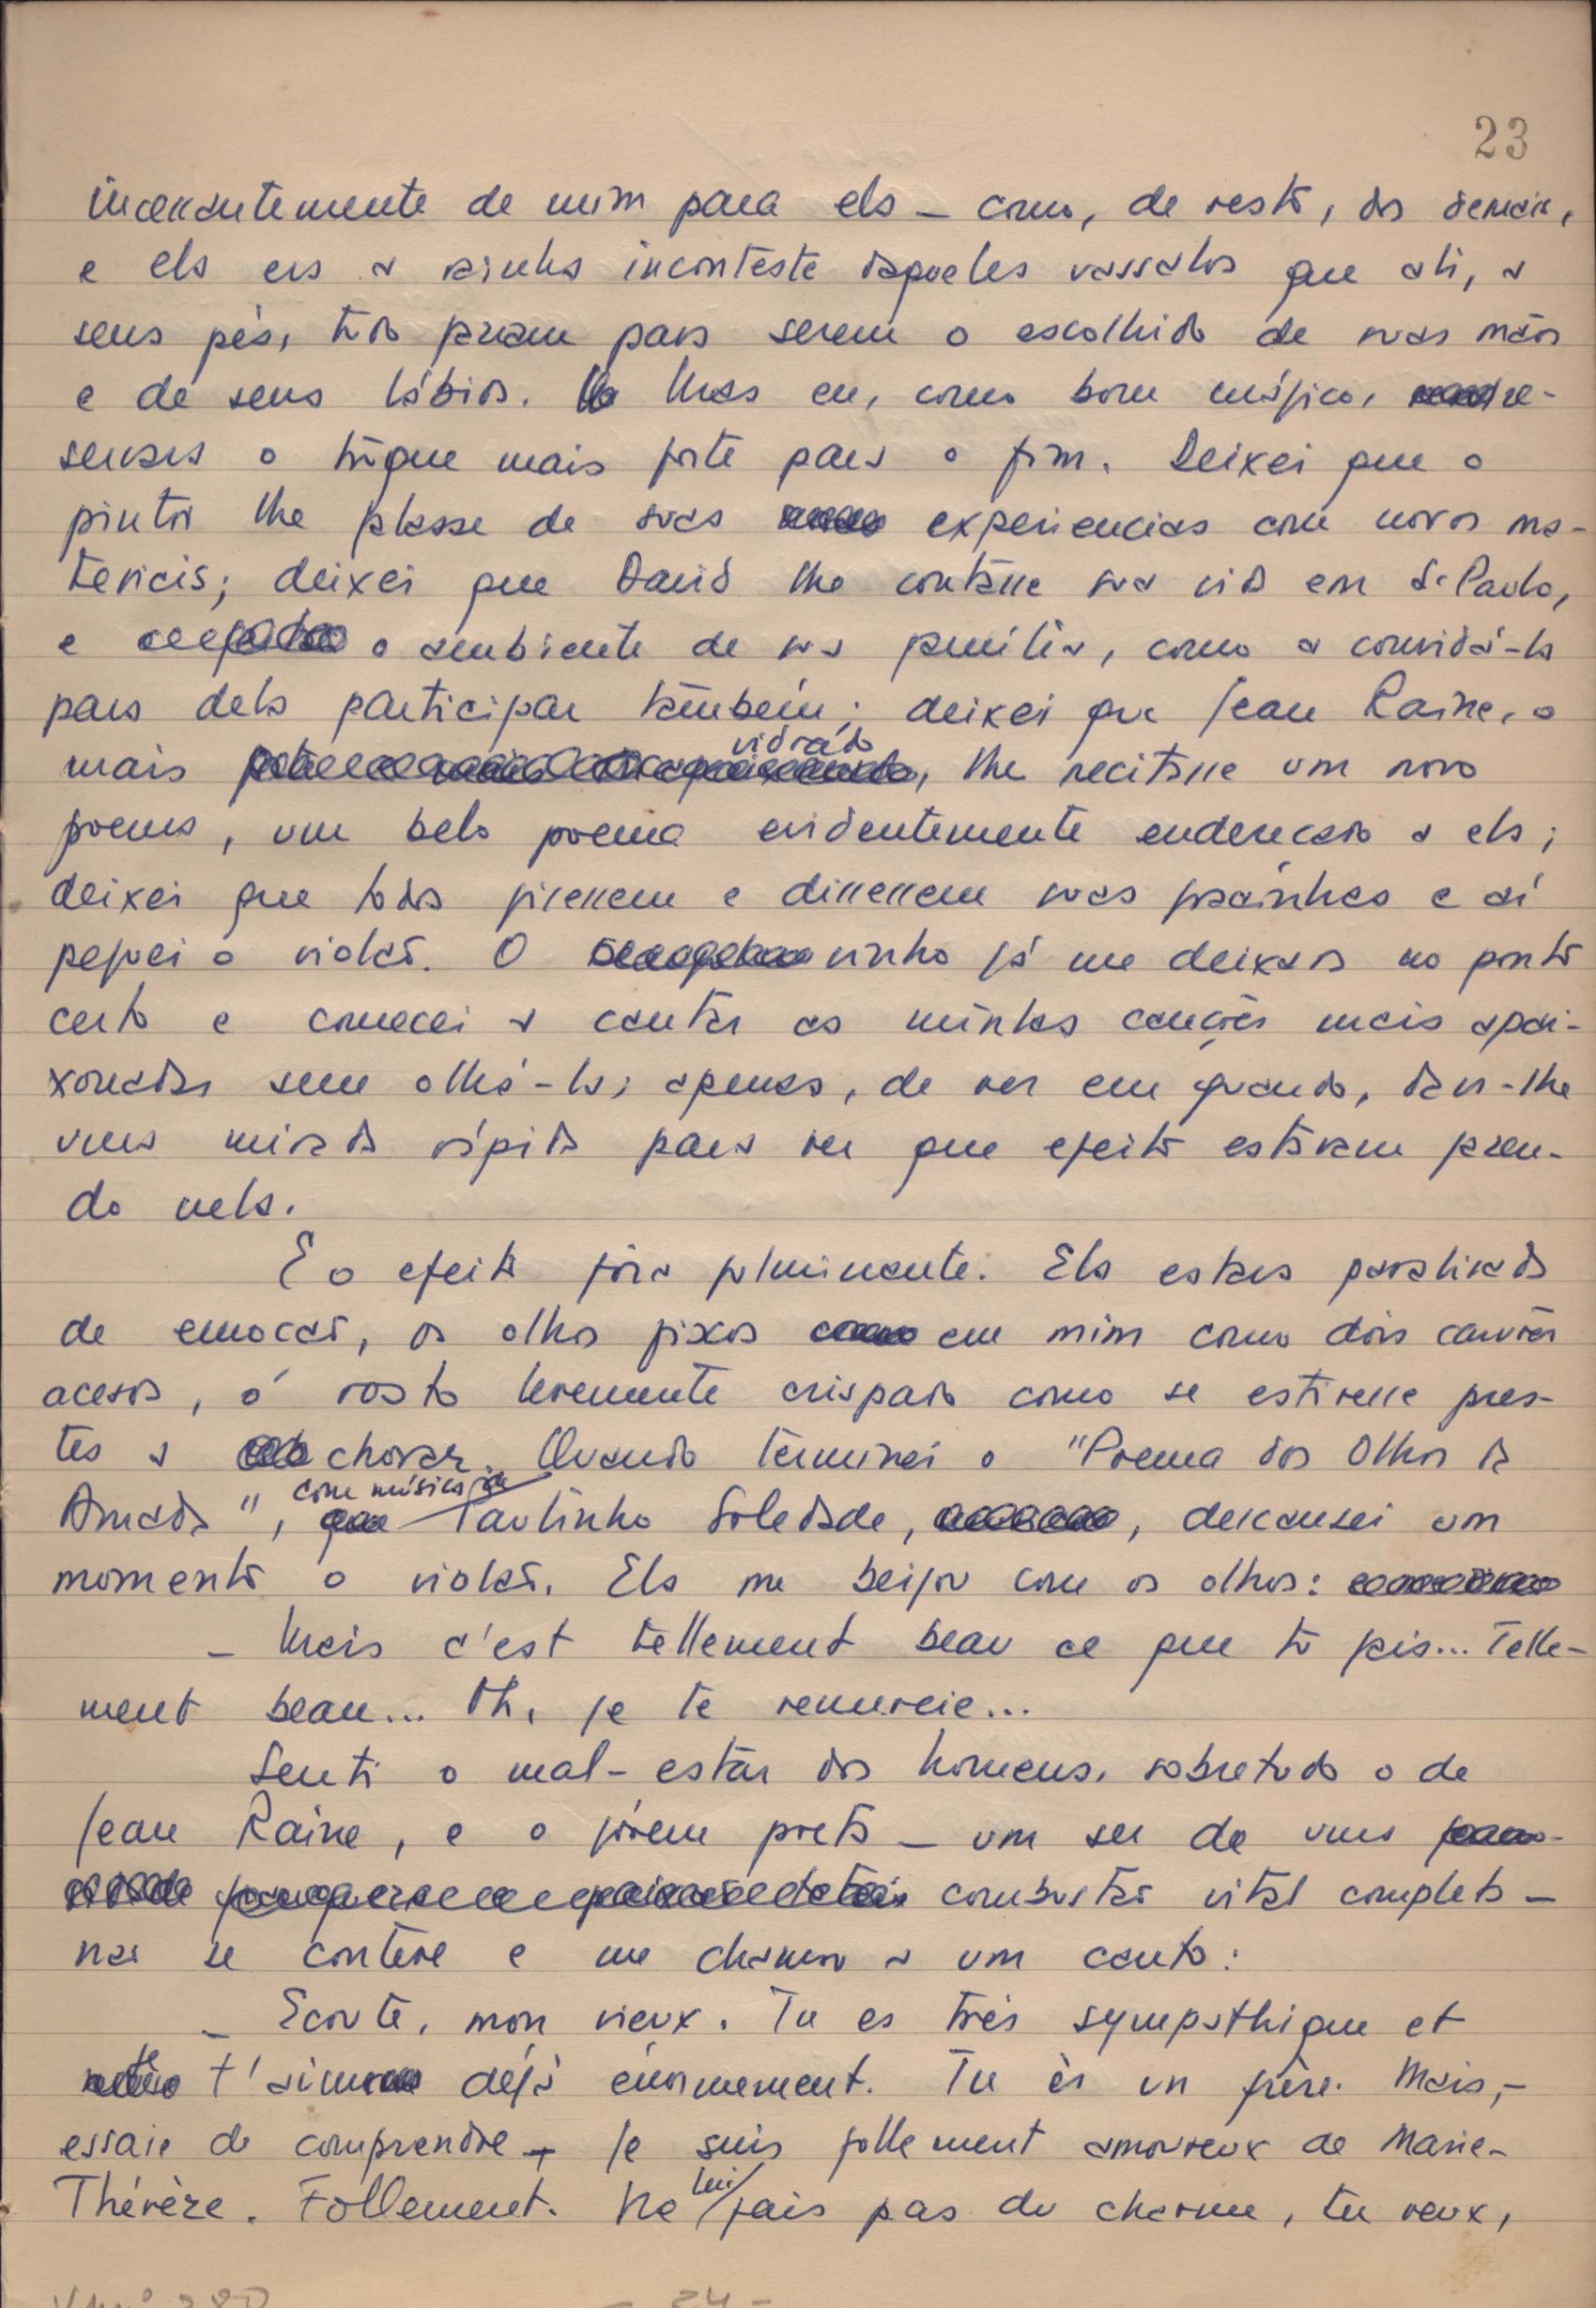 23
incessantemente de mim para ela – como, de resto, os demais,
e ela era a rainha inconteste daqueles vassalos que ali, a
seus pés, tudo fariam para serem o escolhido de suas mãos
e de seus lábios. Mas eu, como bom mágico, re-
servara o truque mais forte para o fim. Deixei que o
pintor lhe falasse de suas experiencias com novos ma-
teriais; deixei que David lhe contasse sua vida em S. Paulo,
e o ambiente de sua família, como a convidá-la
para dela participar também; deixei que Jean Raine, o
mais vidrado, lhe recitasse um novo
poema, um belo poema evidentemente endereçado a ela;
deixei que todos fizessem e dissessem suas gracinhas e aí
peguei o violão. O vinho já me deixara no ponto
certo e comecei a cantar as minhas canções mais apai-
xonadas sem olhá-la; apenas, de vez em quando, dava-lhe
uma mirada rápida para ver que efeito estavam fazen-
do nela.
E o efeito fôra fulminante. Ela estava paralisada
de emoção, os olhos fixos em mim como dois carvões
acesos, o rosto levemente crispado como se estivesse pres-
tes a chorar. Quando terminei o "Poema dos Olhos da
Amada", com música de Paulinho Soledade, descansei um
momento o violão. Ela me beijou com os olhos:
– Mais c'est tellement beau ce que tu fais... Telle-
ment beau... Oh, je te remercie...
Senti o mal-estar dos homens, sobretudo o de
Jean Raine, e o jovem poeta – um ser de uma
combustão vital completa –
não se conteve e me chamou a um canto:
– Ecoute, mon vieux. Tu es très sympathique et
je t'aime déjà énormement. Tu ès un frère. Mais, –
essaie de comprendre – je suis follement amoureux de Marie-
Thérèze. Follement. Ne lui fais pas du charme, tu veux,
– 24 –